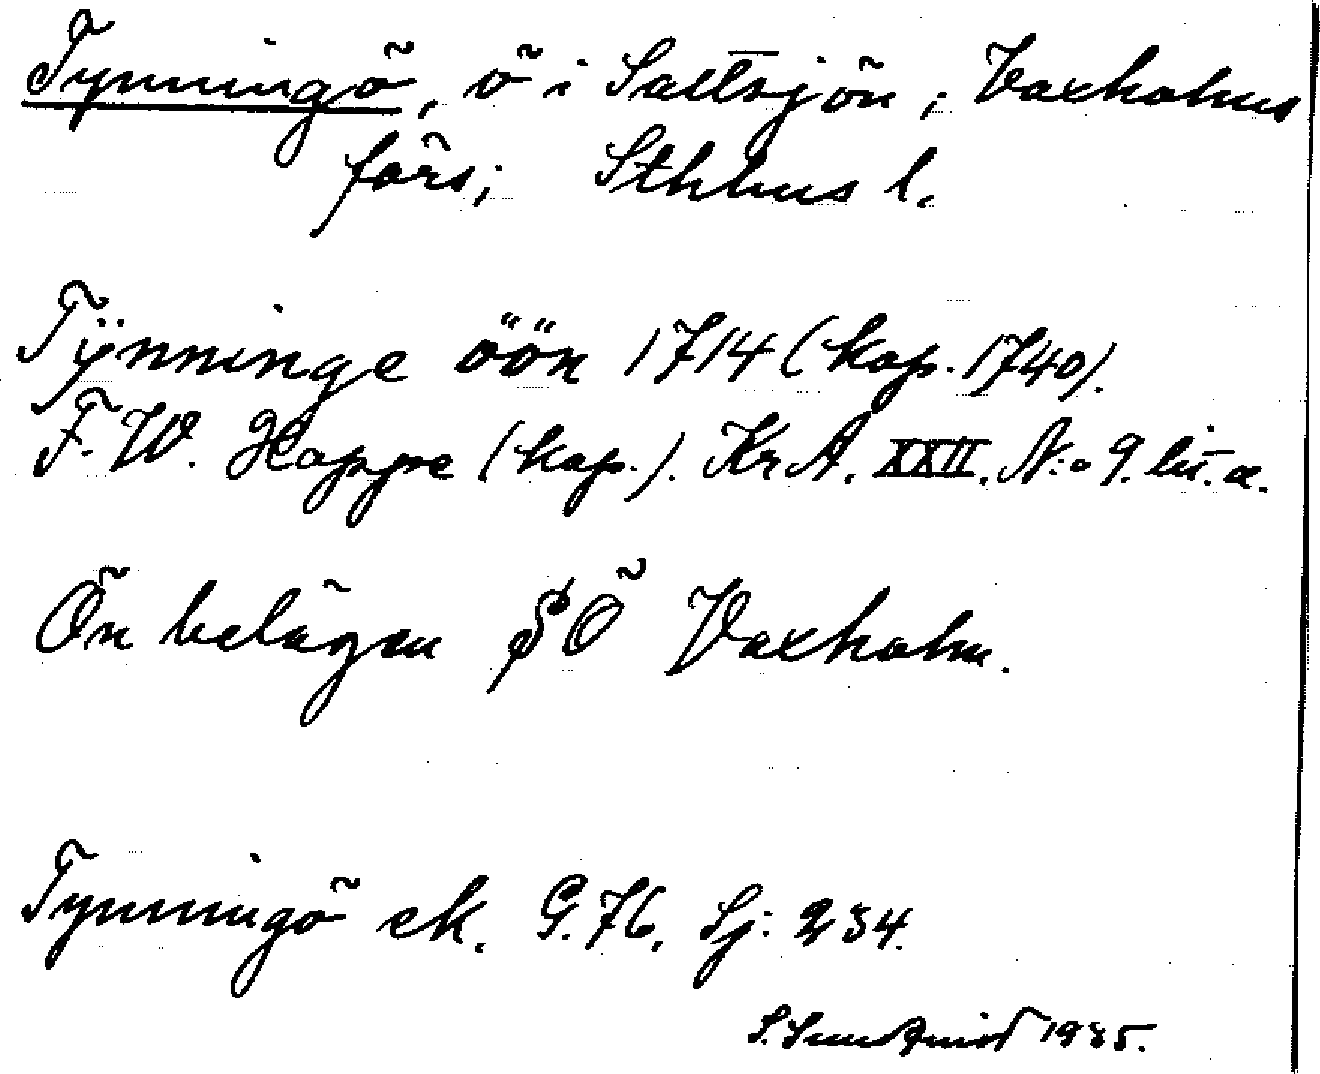 Tynningö, ö i Saltsjön, Vaxholms
förs; Sthlms l.
Tÿnninge öön 1714 (kop. 1740).
F. W. Hoppe (kop.). KrA. XXII. N:o 9. lit. a.
Ön belägen SÖ Vaxholm.
Tynningö ek. G. 76. Sj: 234.
S. Sundquist 1935.